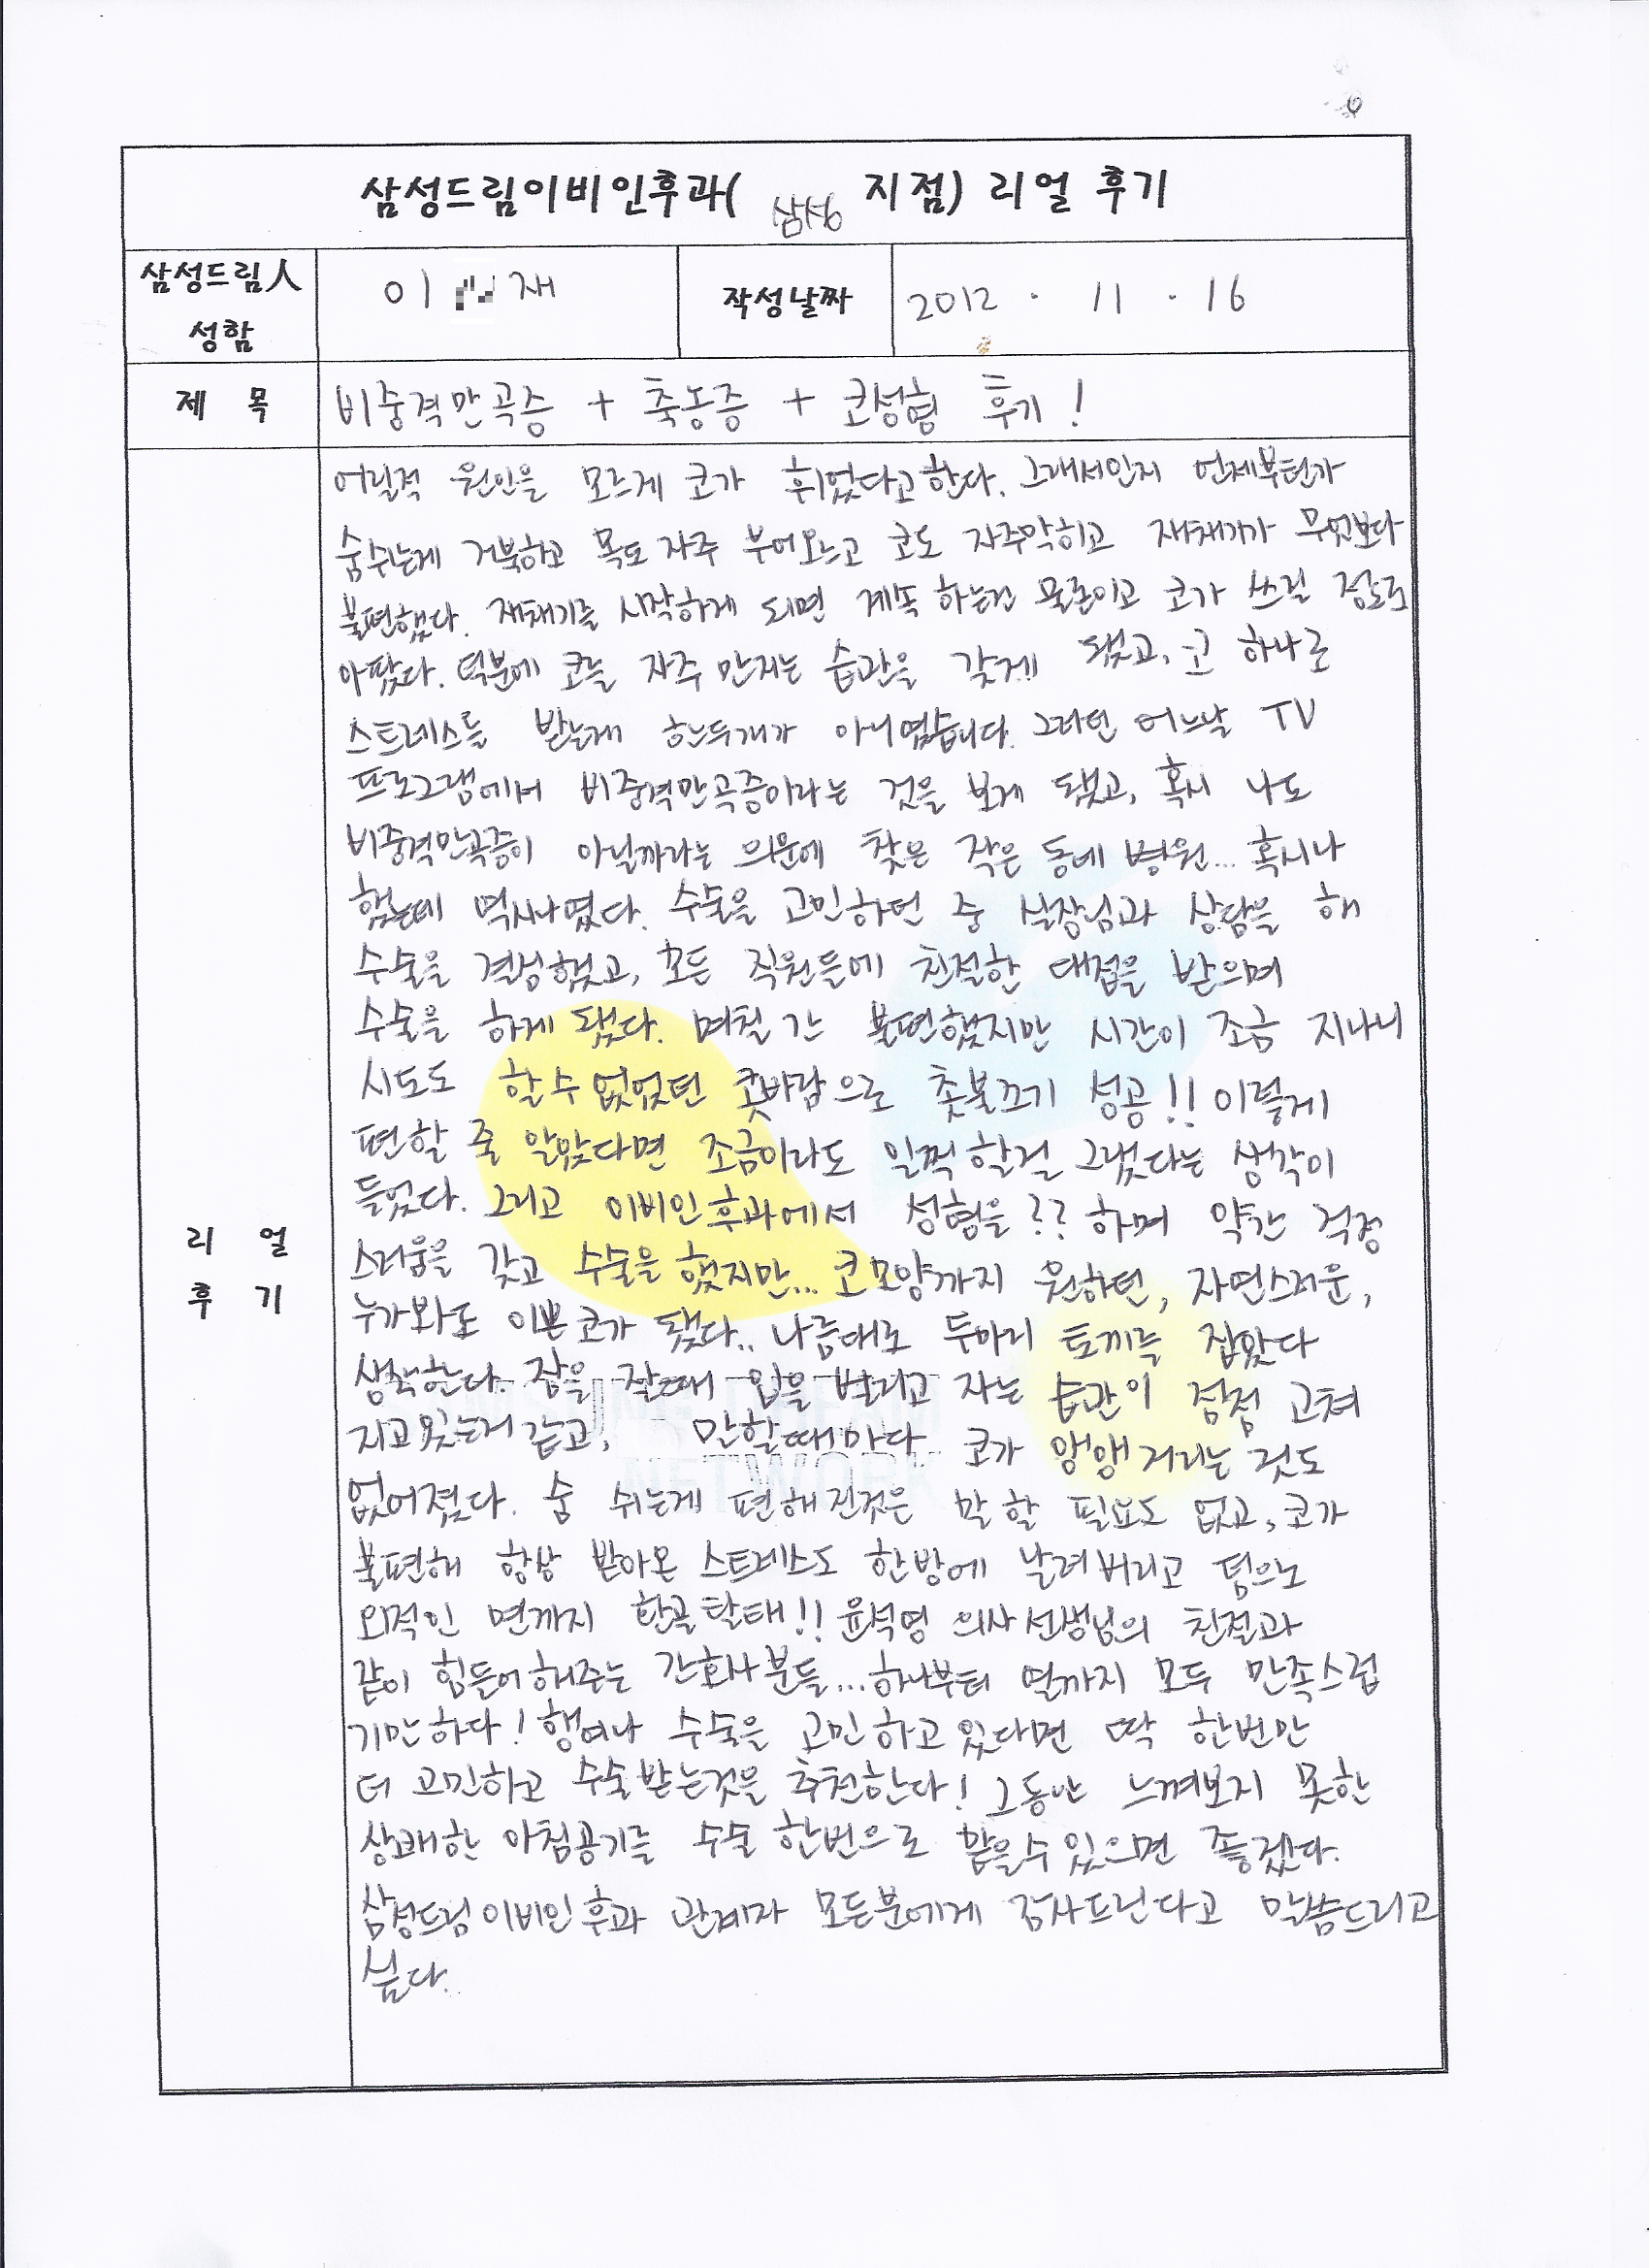 삼성드림이비인후과( 삼성 지점) 리얼 후기
삼성드림人 성함
이 재
작성날짜
2012 . 11 . 16
제 목
비중격만곡증 + 축농증 + 코성형 후기!
리 얼
후 기
어릴적 원인을 모르게 코가 휘었다고한다. 그래서인지 언제부턴가
숨쉬는게 거북하고 목도 자주 부어오르고 코도 자주막히고 재채기가 무엇보다
불편했다. 재채기를 시작하게 되면 계속 하는건 물론이고 코가 쓰릴 정도로
아팠다. 덕분에 코를 자주 만지는 습관을 갖게 됐고, 코 하나로
스트레스를 받는게 한두개가 아니였습니다. 그러던 어느날 TV
프로그램에서 비중격만곡증이라는 것을 보게 됐고, 혹시 나도
비중격만곡증이 아닐까라는 의문에 찾은 작은 동네 병원... 혹시나
했는데 역시나였다. 수술을 고민하던 중 실장님과 상담을 해
수술을 결성했고, 모든 직원들에 친절한 대접을 받으며
수술을 하게 됐다. 며칠 간 불편했지만 시간이 조금 지나니
시도도 할수 없었던 콧바람으로 촛불끄기 성공!! 이렇게
편할 줄 알았다면 조금이라도 일찍할걸 그랬다는 생각이
들었다. 그리고 이비인후과에서 성형을?? 하며 약간 걱정
스러움을 갖고 수술을 했지만... 코모양까지 원하던, 자연스러운,
누가봐도 이쁜코가 됐다.. 나름대로 두마리 토끼를 잡았다
생각한다. 잠을 잘때 입을 벌리고 자는 습관이 점점 고쳐
지고있는거 같고, 말할때마다 코가 앵앵거리는 것도
없어졌다. 숨 쉬는게 편해진것은 말 할 필요도 없고, 코가
불편해 항상 받아온 스트레스도 한방에 날려버리고 덤으로
외적인 면까지 환골탈태!! 윤석영 의사선생님의 친절과
같이 힘들어해주는 간호사분들...하나부터 열까지 모두 만족스럽
기만하다! 행여나 수술을 고민하고있다면 딱 한번만
더 고민하고 수술받는것을 추천한다! 그동안 느껴보지 못한
상쾌한 아침공기를 수술 한번으로 맡을수있으면 좋겠다.
삼성드림이비인후과 관계자 모든분에게 감사드린다고 말씀드리고
싶다.
SAMSUNG DREAM
NETWORK